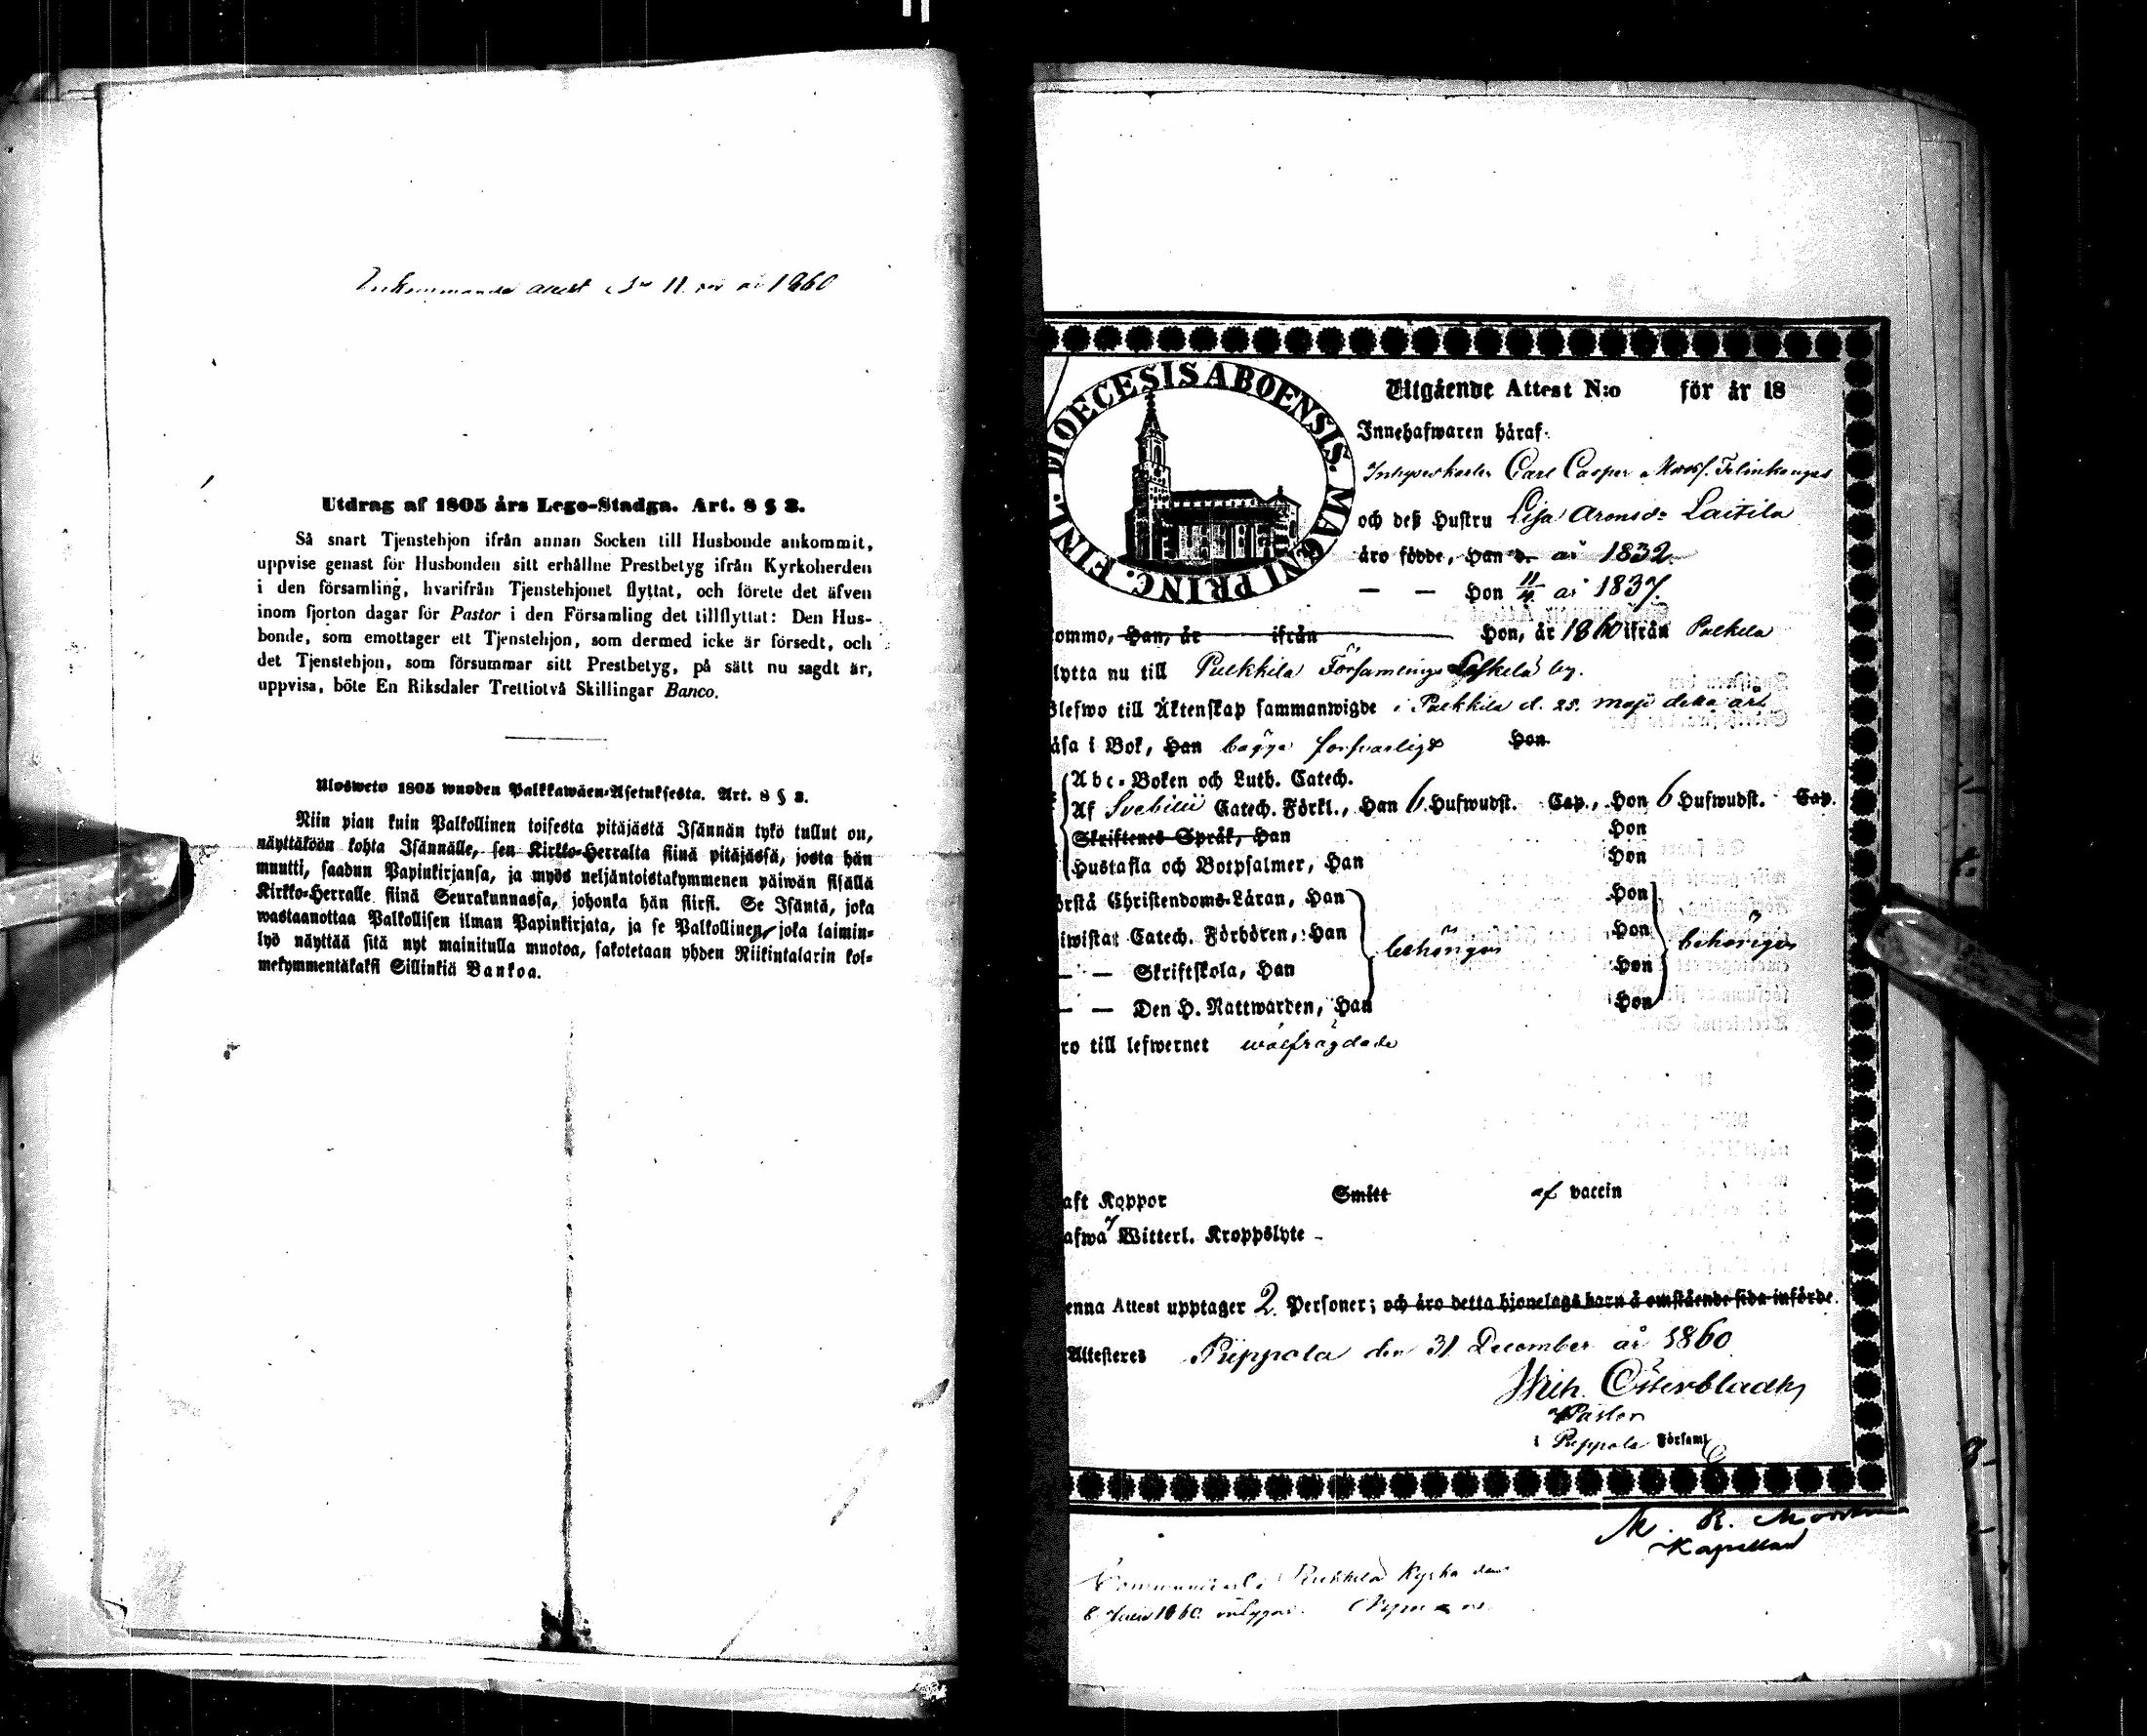 Inkommande attest N:o 11 för år 1860
Utdrag af 1805 års Lego-Stadga. Art. 8 § 3.
Så snart Tjenstehjon ifrån annan Socken till Husbonde ankommit,
uppvise genast för Husbonden sitt erhållne Prestbetyg ifrån Kyrkoherden
i den församling, hvarifrån Tjenstehjonet flyttat, och förete det äfven
inom fjorton dagar för Pastor i den Församling det tillflyttat: Den Hus-
bonde, som emottager ett Tjenstehjon, som dermed icke är försedt, och
det Tjenstehjon, som försummar sitt Prestbetyg, på sätt nu sagdt är,
uppvisa, böte En Riksdaler Trettiotvå Skillingar Banco.
Ulosweto 1805 wuoden Palkkawäen-Asetuksesta. Art. 8 § 3.
Niin pian kuin Palkollinen toisesta pitäjästä Isännän tykö tullut on,
näyttäköön kohta Isännälle, sen Kirkko-Herralta siinä pitäjässä, josta hän
muutti, saadun Papinkirjansa, ja myös neljäntoistakymmenen päiwän sisällä
Kirkko-Herralle siinä Seurakunnassa, johonka hän siirsi. Se Isäntä, joka
wastaanottaa Palkollisen ilman Papinkirjata, ja se Palkollinen, joka laimin-
lyö näyttää sitä nyt mainitulla muotoa, sakotetaan yhden Riikintalarin kol-
mekymmentäkaksi Sillinkiä Bankoa.
DIOECESIS ABOENSIS. MAGNI PRINC. FINL.
Utgående Attest N:o för år 18
Innehafwaren häraf
Carl Casper
och deß Hustru Lisa Aronsdr Laitila
äro födde, Han d. år 1832
— — Hon 11/4 år 1837.
ommo, Han, år ifrån Hon, år 1860 ifrån Pulkkila
lytta nu till Pulkkila Församlings by.
Blefwo till Äktenskap sammanwigde i Pulkkila d. 25. maji detta år
äsa i Bok, Han bägge försvarligt Hon
Abc-Boken och Luth. Catech.
Af Svebilii Catech. Förkl., Han 6 Hufwudst. Cap., Hon 6 Hufwudst. Cap.
Skriftenes Språk, Han Hon
Hustafla och Botpsalmer, Han Hon
örstå Christendoms-Läran, Han Hon
iwistat Catech. Förhören, Han behörigen Hon behörigen
— — Skriftskola, Han Hon
— — Den H. Nattwarden, Han Hon
ro till lefwernet wälfrägdade
aft Koppor Smitt af vaccin
afwa Witterl. Kroppslyte -
enna Attest upptager 2 Personer; och äro detta hjonelags barn å omstående sida införde.
Attesteres Piippola den 31 December år 1860
Wilh. Österbladh
Pastor
i Piippola Församl
M. R.
Kapellan
Pulkkila Kyrka den
8 1860